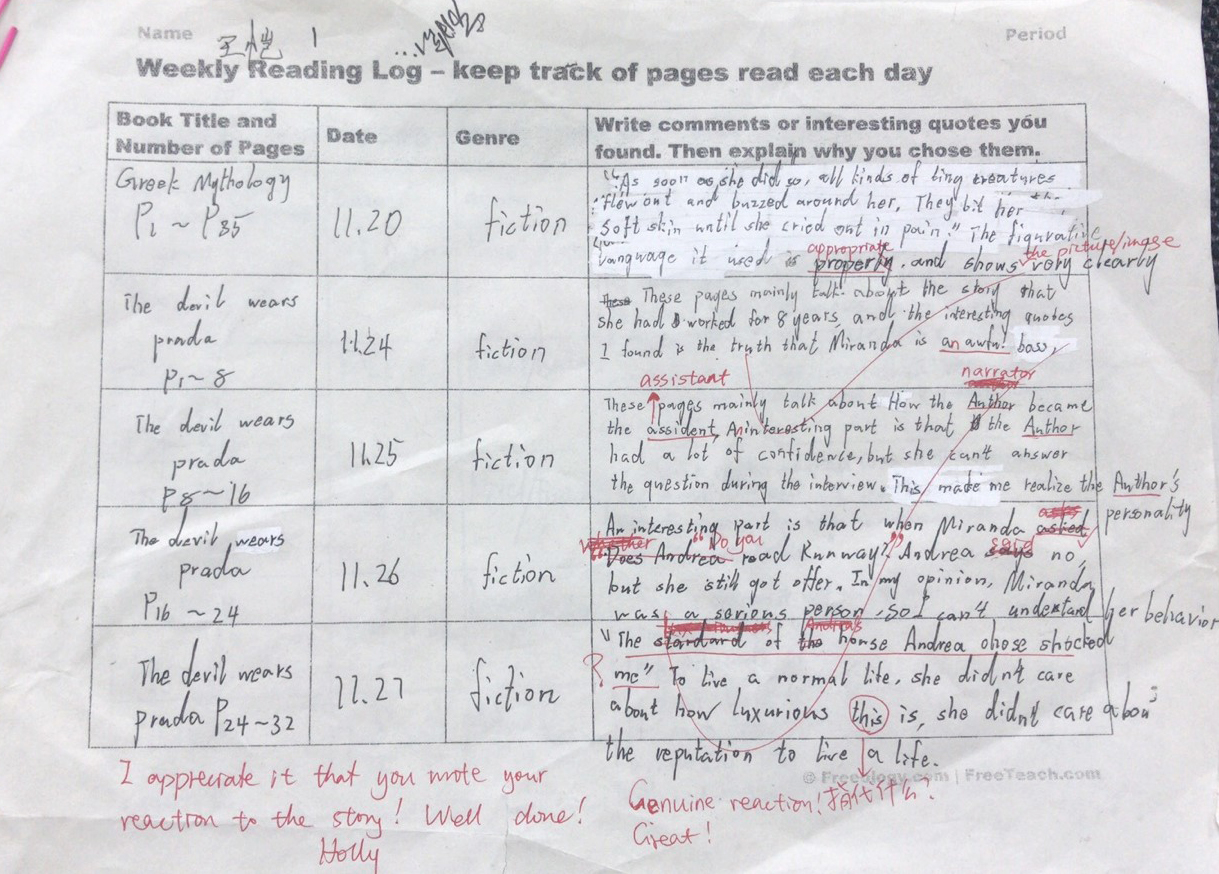 Name
Period
Weekly Reading Log – keep track of pages read each day
Book Title and
Number of Pages
Date
Genre
Write comments or interesting quotes you
found. Then explain why you chose them.
Greek Mythology
P1 ~ P35
11.20
fiction
"As soon as she did so, all kinds of tiny creatures
flew out and buzzed around her. They bit her
soft skin until she cried out in pain." The figurative
language it used is properly and shows very clearly
appropriate
the picture/image
The devil wears
prada
P1~8
11.24
fiction
These pages mainly talk about the story that
she had worked for 8 years, and the interesting quotes
I found is the truth that Miranda is an awful boss,
The devil wears
prada
P8~16
11.25
fiction
assistant
narrator
These pages mainly talk about How the Author became
the assident, An interesting part is that the Author
had a lot of confidence, but she can't answer
the question during the interview. This made me realize the Author's
personality
The devil wears
prada
P16 ~24
11.26
fiction
An interesting part is that when Miranda asked
whether
"Do you
said
"Does Andrea read Runway?" Andrea says no,
but she still got offer. In my opinion, Miranda
was a serious person, so I can't understand her behavior
The devil wears
prada P24~32
11.27
fiction
"The standard of the house Andrea chose shocked
me" To live a normal life, she didn't care
about how luxurious this is, she didn't care abou
the reputation to live a life.
?
© Freeology.com | FreeTeach.com
I appreciate it that you wrote your
reaction to the story! Well done!
Holly
Genuine reaction!
指代什么?
Great!